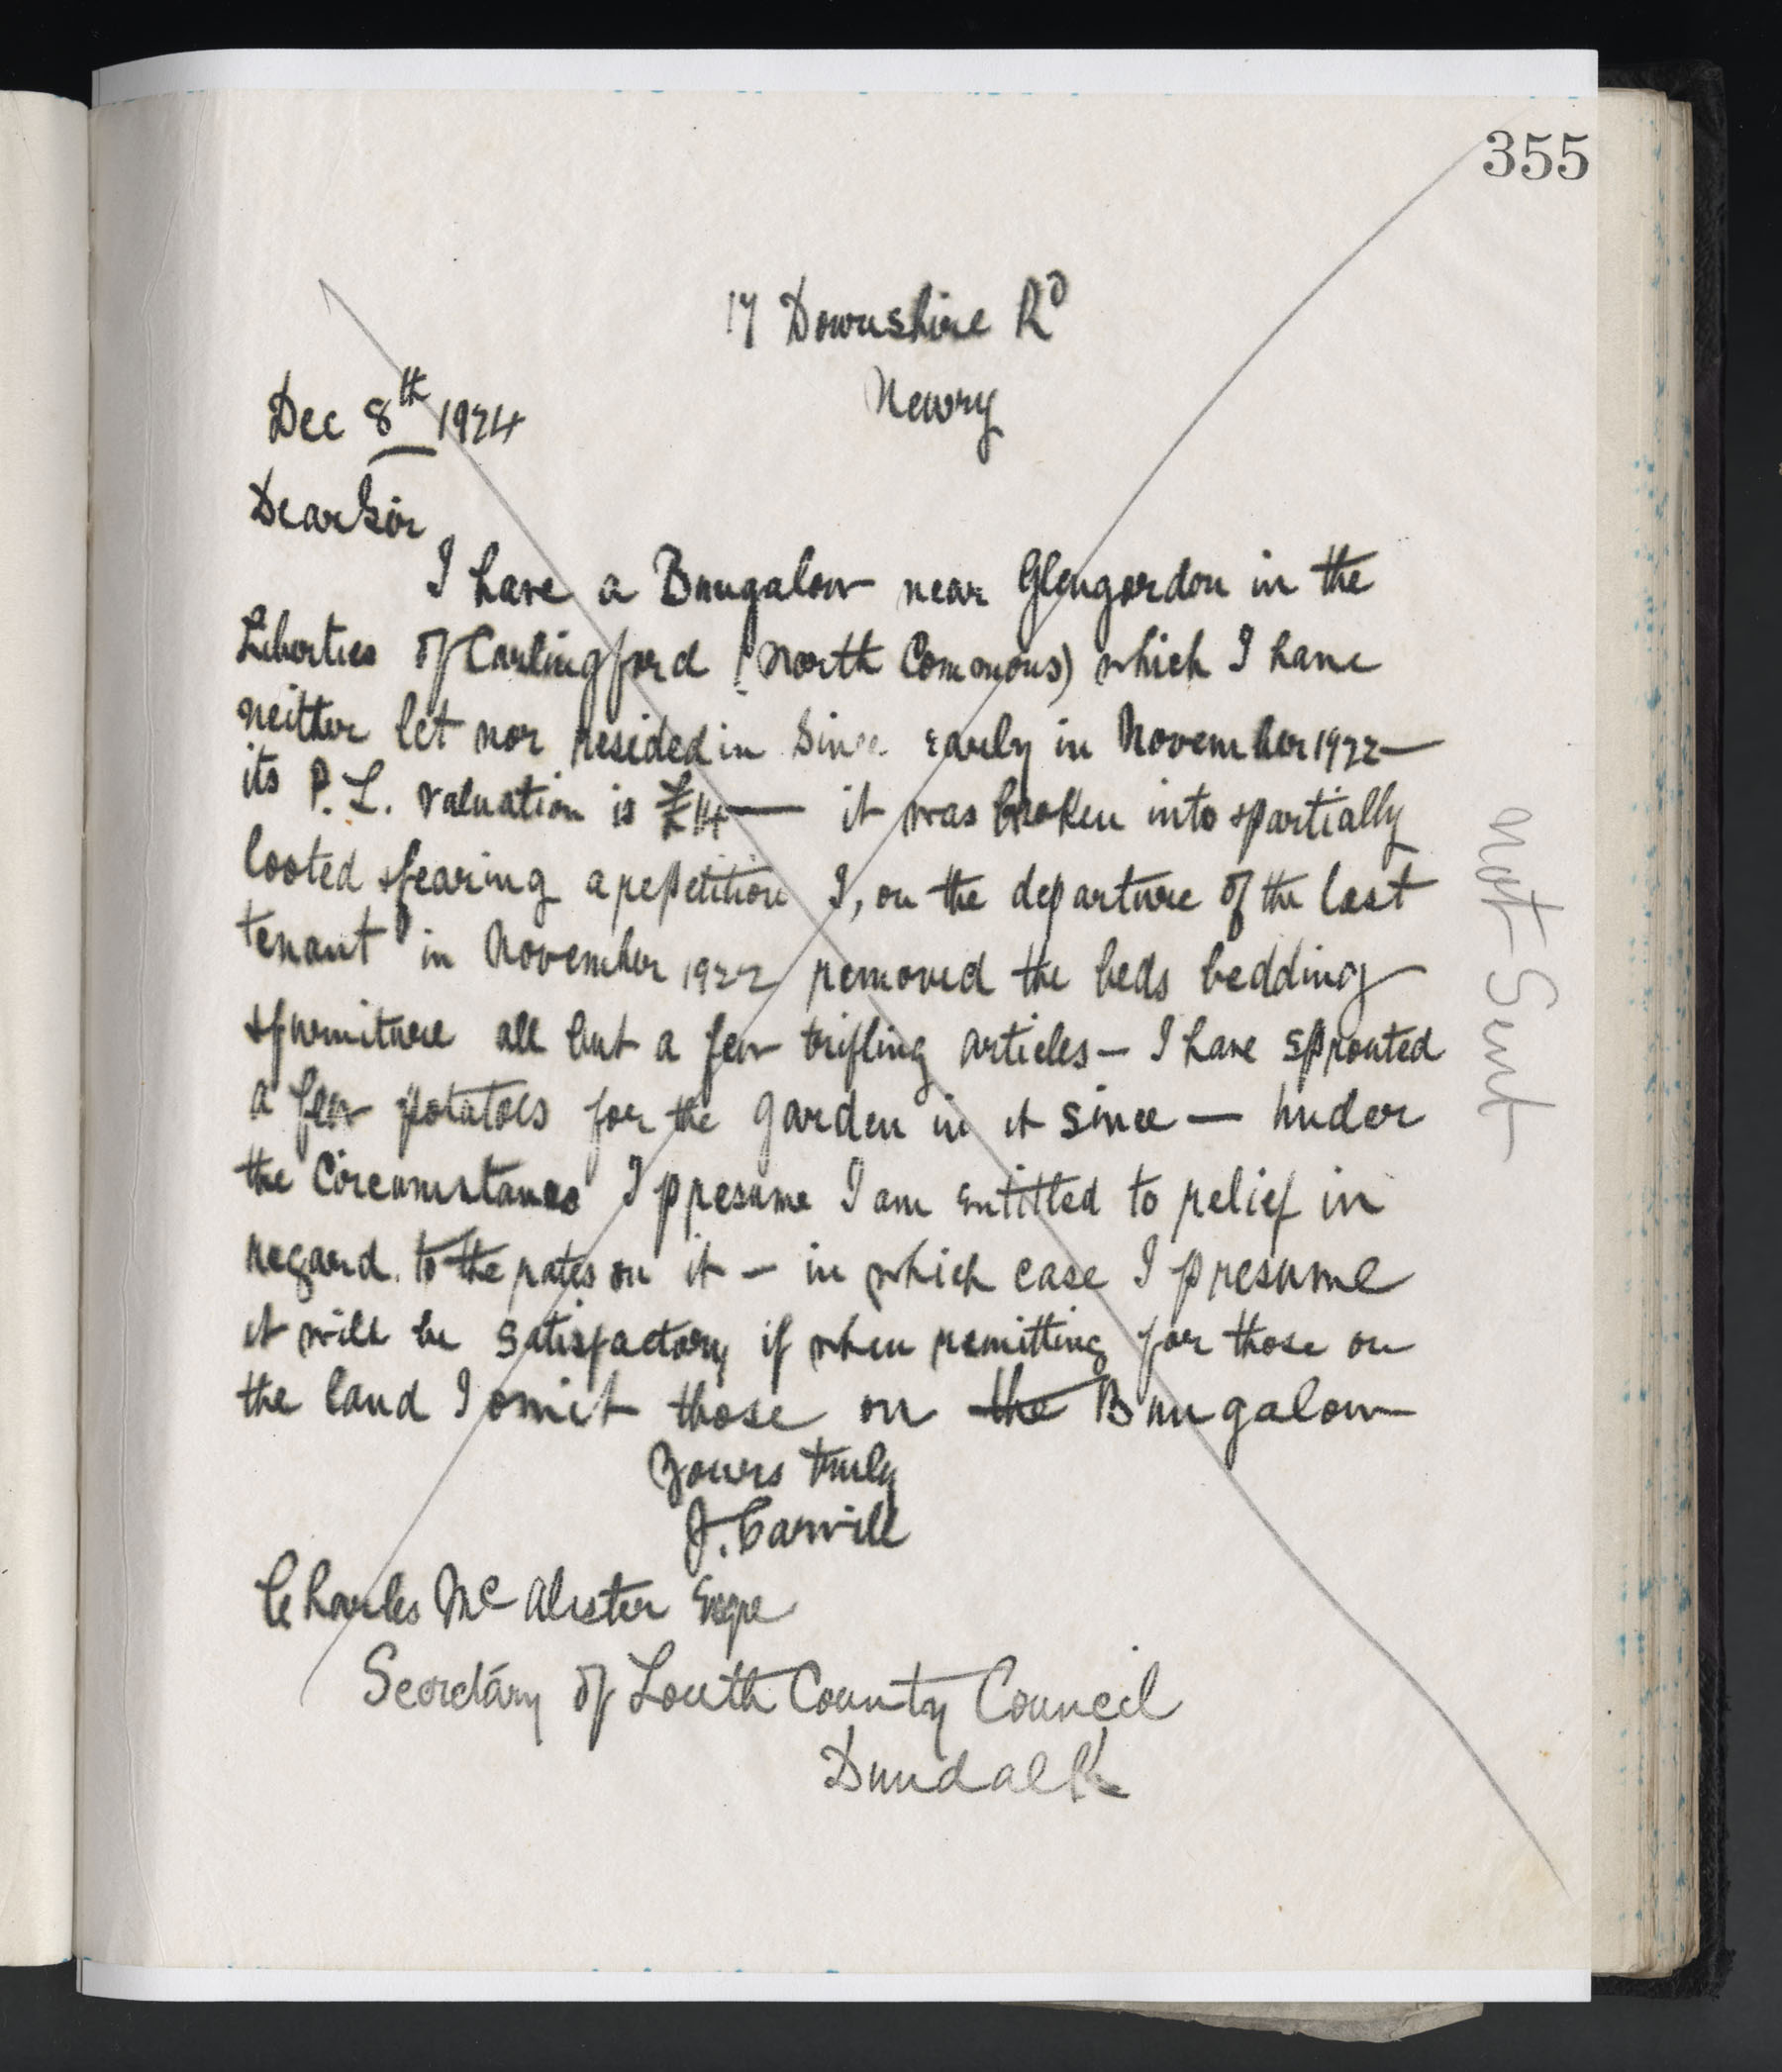 355
17 Downshire Rd
Newry
Dec 8th 1924
Dear Sir
I have a Bungalow near Glengordon in the
Liberties of Carlingford (North Commons) which I have
neither let nor resided in since early in November 1922 —
its P. L. valuation is £14 — it was broken into & partially
looted & fearing a repetition I, on the departure of the last
tenant in November 1922 removed the beds bedding
& furniture all but a few trifling articles — I have sprouted
a few potatoes for the garden in it since — under
the Circumstances I presume I am entitled to relief in
regard to the rates on it — in which case I presume
it will be satisfactory if when remitting for those on
the land I omit those on the Bungalow
Yours truly
J. Carvill
Charles McAlister Esqre
Secretary of Louth County Council
Dundalk
Not Sent